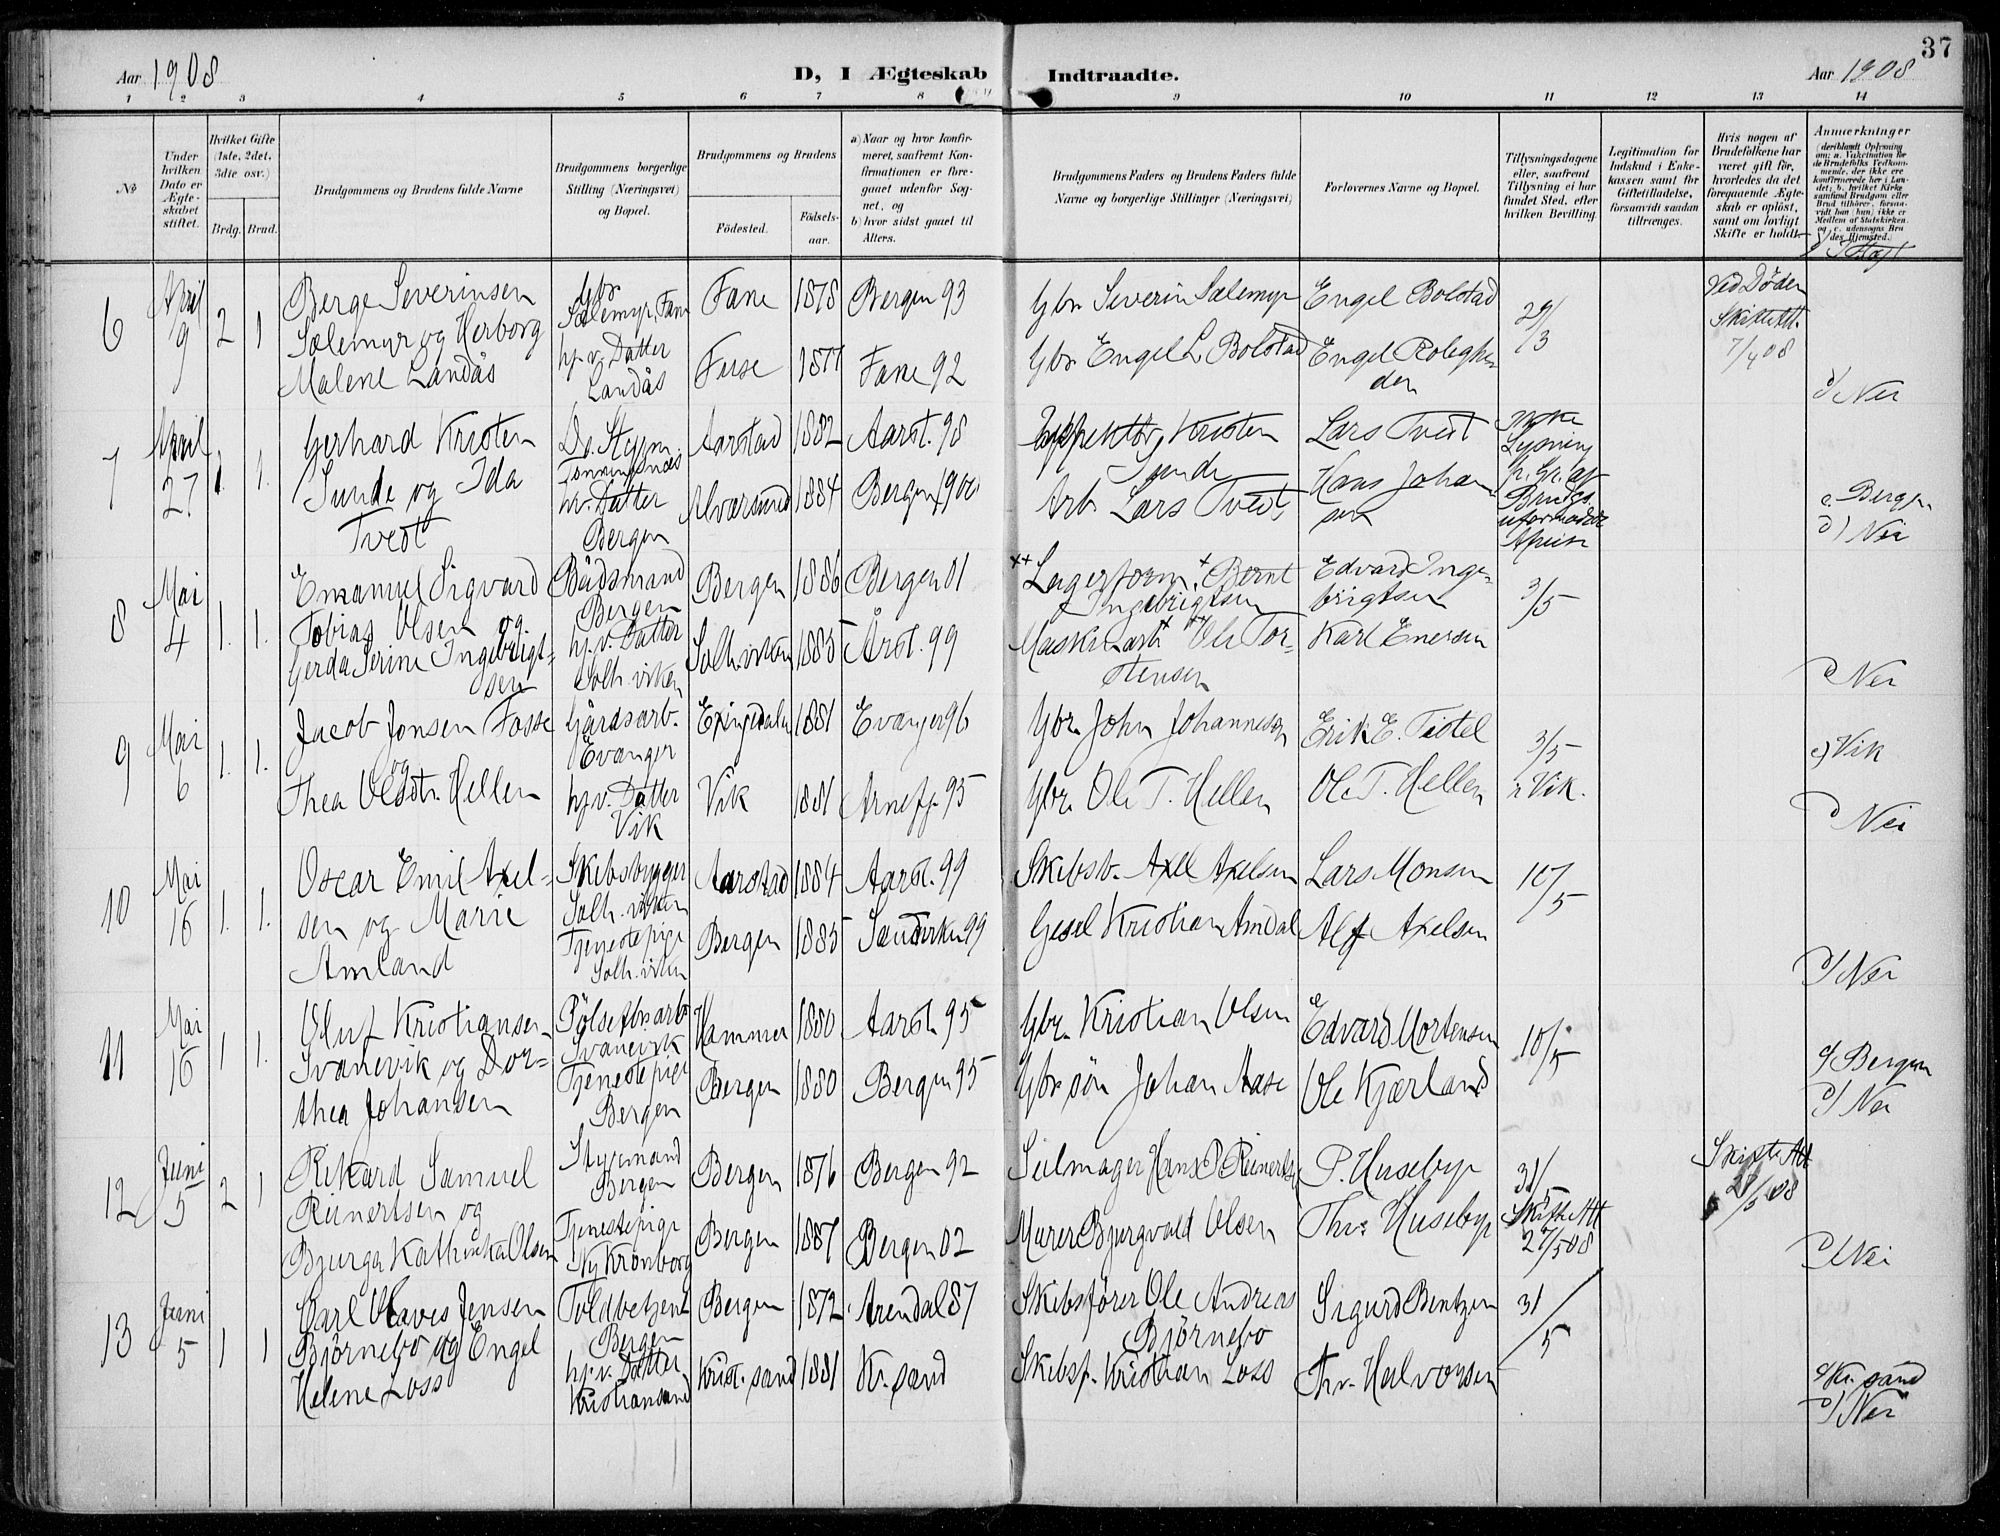 37
Aar 1908
D, I Ægteskab Indtraadte.
Aar 1908
1 2 3 4 5 6 7 8 9 10 11 12 13 14
No
Under hvilken Dato er Ægteskabet stiftet.
Hvilket Gifte (1ste, 2det, 3die osv.)
Brdg. Brud.
Brudgommens og Brudens fulde Navne
Brudgommens borgerlige Stilling (Næringsvei) og Bopæl.
Brudgommens og Brudens
Fødested. Fødselsaar.
a) Naar og hvor konfirmeret, saafremt Konfirmationen er foregaaet udenfor Sognet, og
b) hvor sidst gaaet til Alters.
Brudgommens Faders og Brudens Faders fulde Navne og borgerlige Stillinger (Næringsvei)
Forlovernes Navne og Bopæl.
Tillysningsdagene eller, saafremt Tillysning ei har fundet Sted, efter hvilken Bevilling.
Legitimation for Indskud i Enkekassen samt for Giftetilladelse, forsaavidt saadan tiltrænges.
Hvis nogen af Brudefolkene har været gift før, hvorledes da det foregaaende Ægteskab er opløst, samt om lovligt Skifte er holdt.
Anmærkninger (deriblandt Oplysning om: a. Vakcination for de Brudefolks Vedkommende, der ikke ere konfirmerede her i Landet; b. hvilket Kirkesamfund Brudgom eller Brud tilhører, forsaavidt han (hun) ikke er Medlem af Statskirken, og c. udensogns Brudes Hjemsted.)
6
April 9
2 1
Berge Severinsen
Sælemyr og Herborg
Malene Landås
Gbr
Sælemyr, Fane
hj.v. Datter
Landås
Fane 1878 Bergen 93
Fuse 1877 Fane 92
Gbr Severin Sælemyr
Gbr. Engel L Bolstad
Engel Bolstad
29/3
Ved Døden
Skifte Att.
7/4 08
d/ Nei
7
April 27
1. 1.
Gerhard Kristen
Sunde og Ida
Tvedt
hv. Datter
Bergen
Aarstad 1882 Aarst. 98
Alversund 1884 Bergen 1900
Kristen
Sunde
Arb Lars Tvedt
Lars Tvedt
Hans Johansen
Ikke
Lysning
c. Bergen
d) Nei
8
Mai 4
1. 1.
Emanuel Sigvard
Tobias Olsen og
Gerda Serine Ingebrigtsen
Bådsmand
Bergen
hj.v. Datter
Solh.viken
Bergen 1886 Bergen 01
Solh.viken 1885 Årst. 99
++Lagerform. +Bernt
Ingebrigtsen
Maskinarb ++Ole Torstensen
Edvard Ingebrigtsen
Karl Enersen
3/5
d Nei
9
Mai 6
1. 1.
Jacob Jonsen Fosse
og
Thea Olsdtr. Hellen
Gårdsarb.
Evanger
hj.v. Datter
Vik
Exingedalen 1881 Evanger 96
Vik 1881 Arnefj. 95
Gbr. John Johannesen
Gbr. Ole T. Hellen
Erik E. Tistel
Ole T. Hellen
3/5
i Vik.
c) Vik
d Nei
10
Mai 16
1. 1.
Oscar Emil Axelsen og Marie
Amland
Skibsbygger
Solh.viken
Tjenestepige
Solh.viken
Aarstad 1884 Aarst. 99
Bergen 1885 Sandviken 99
Skibsb. Axel Axelsen
Gesel Kristian Amdal
Lars Monsen
Alf Axelsen
10/5
d/ Nei
11
Mai 16
1 1.
Oluf Kristiansen
Svanevik og Dorthea Johansen
Pølsefbr.arb
Svanevik
Tjenestepige
Bergen
Hammer 1880 Aarst. 95
Bergen 1880 Bergen 95
Gbr. Kristian Olsen
Gbr.søn Johan Aase
Edvard Mortensen
Ole Kjærland
10/5
c/ Bergen
d/ Nei
12
Juni 5
2 1
Rikard Samuel
Reinertsen og
Bjurga Kathinka Olsen
Styrmand
Bergen
Tjenestepige
Ny Kronborg
Bergen 1876 Bergen 92
Bergen 1887 Bergen 02
Seilmager Hans P Reinertsen
Murer Bjurgvald Olsen
P. Husebye
Thv. Husebye
31/
Skifte Att
27/5 08
Skifte Att
27/5 08
d/ Nei
13
Juni 5
1 1
Carl Olaves Jensen
Bjørnebo og Engel
Helene Loss
Toldbetjent
Bergen
hj.v. Datter
Kristiansand
Bergen 1872 Arendal 87
Krist.sand 1881 Kr.sand
Skibsfører Ole Andreas
Bjørnebo
Skibsf. Kristian Loss
Sigurd Bentzen
Thv. Halvorsen
31/5
c/ Kr.sand
d/ Nei